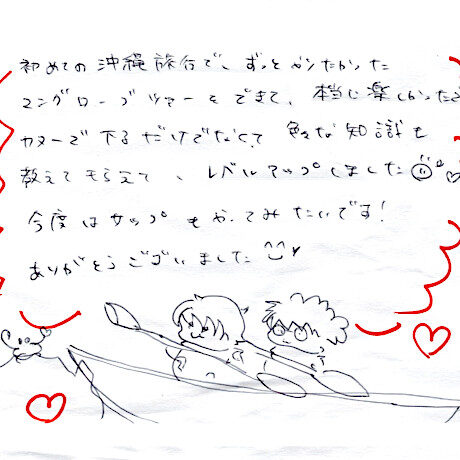 初めての沖縄旅行で、ずっとやりたかった
マングローブツアーをできて、本当に楽しかったです
カヌーで下るだけでなくて色々な知識も
教えてもらえて、レベルアップしました
今度はサップもやってみたいです!
ありがとうございました